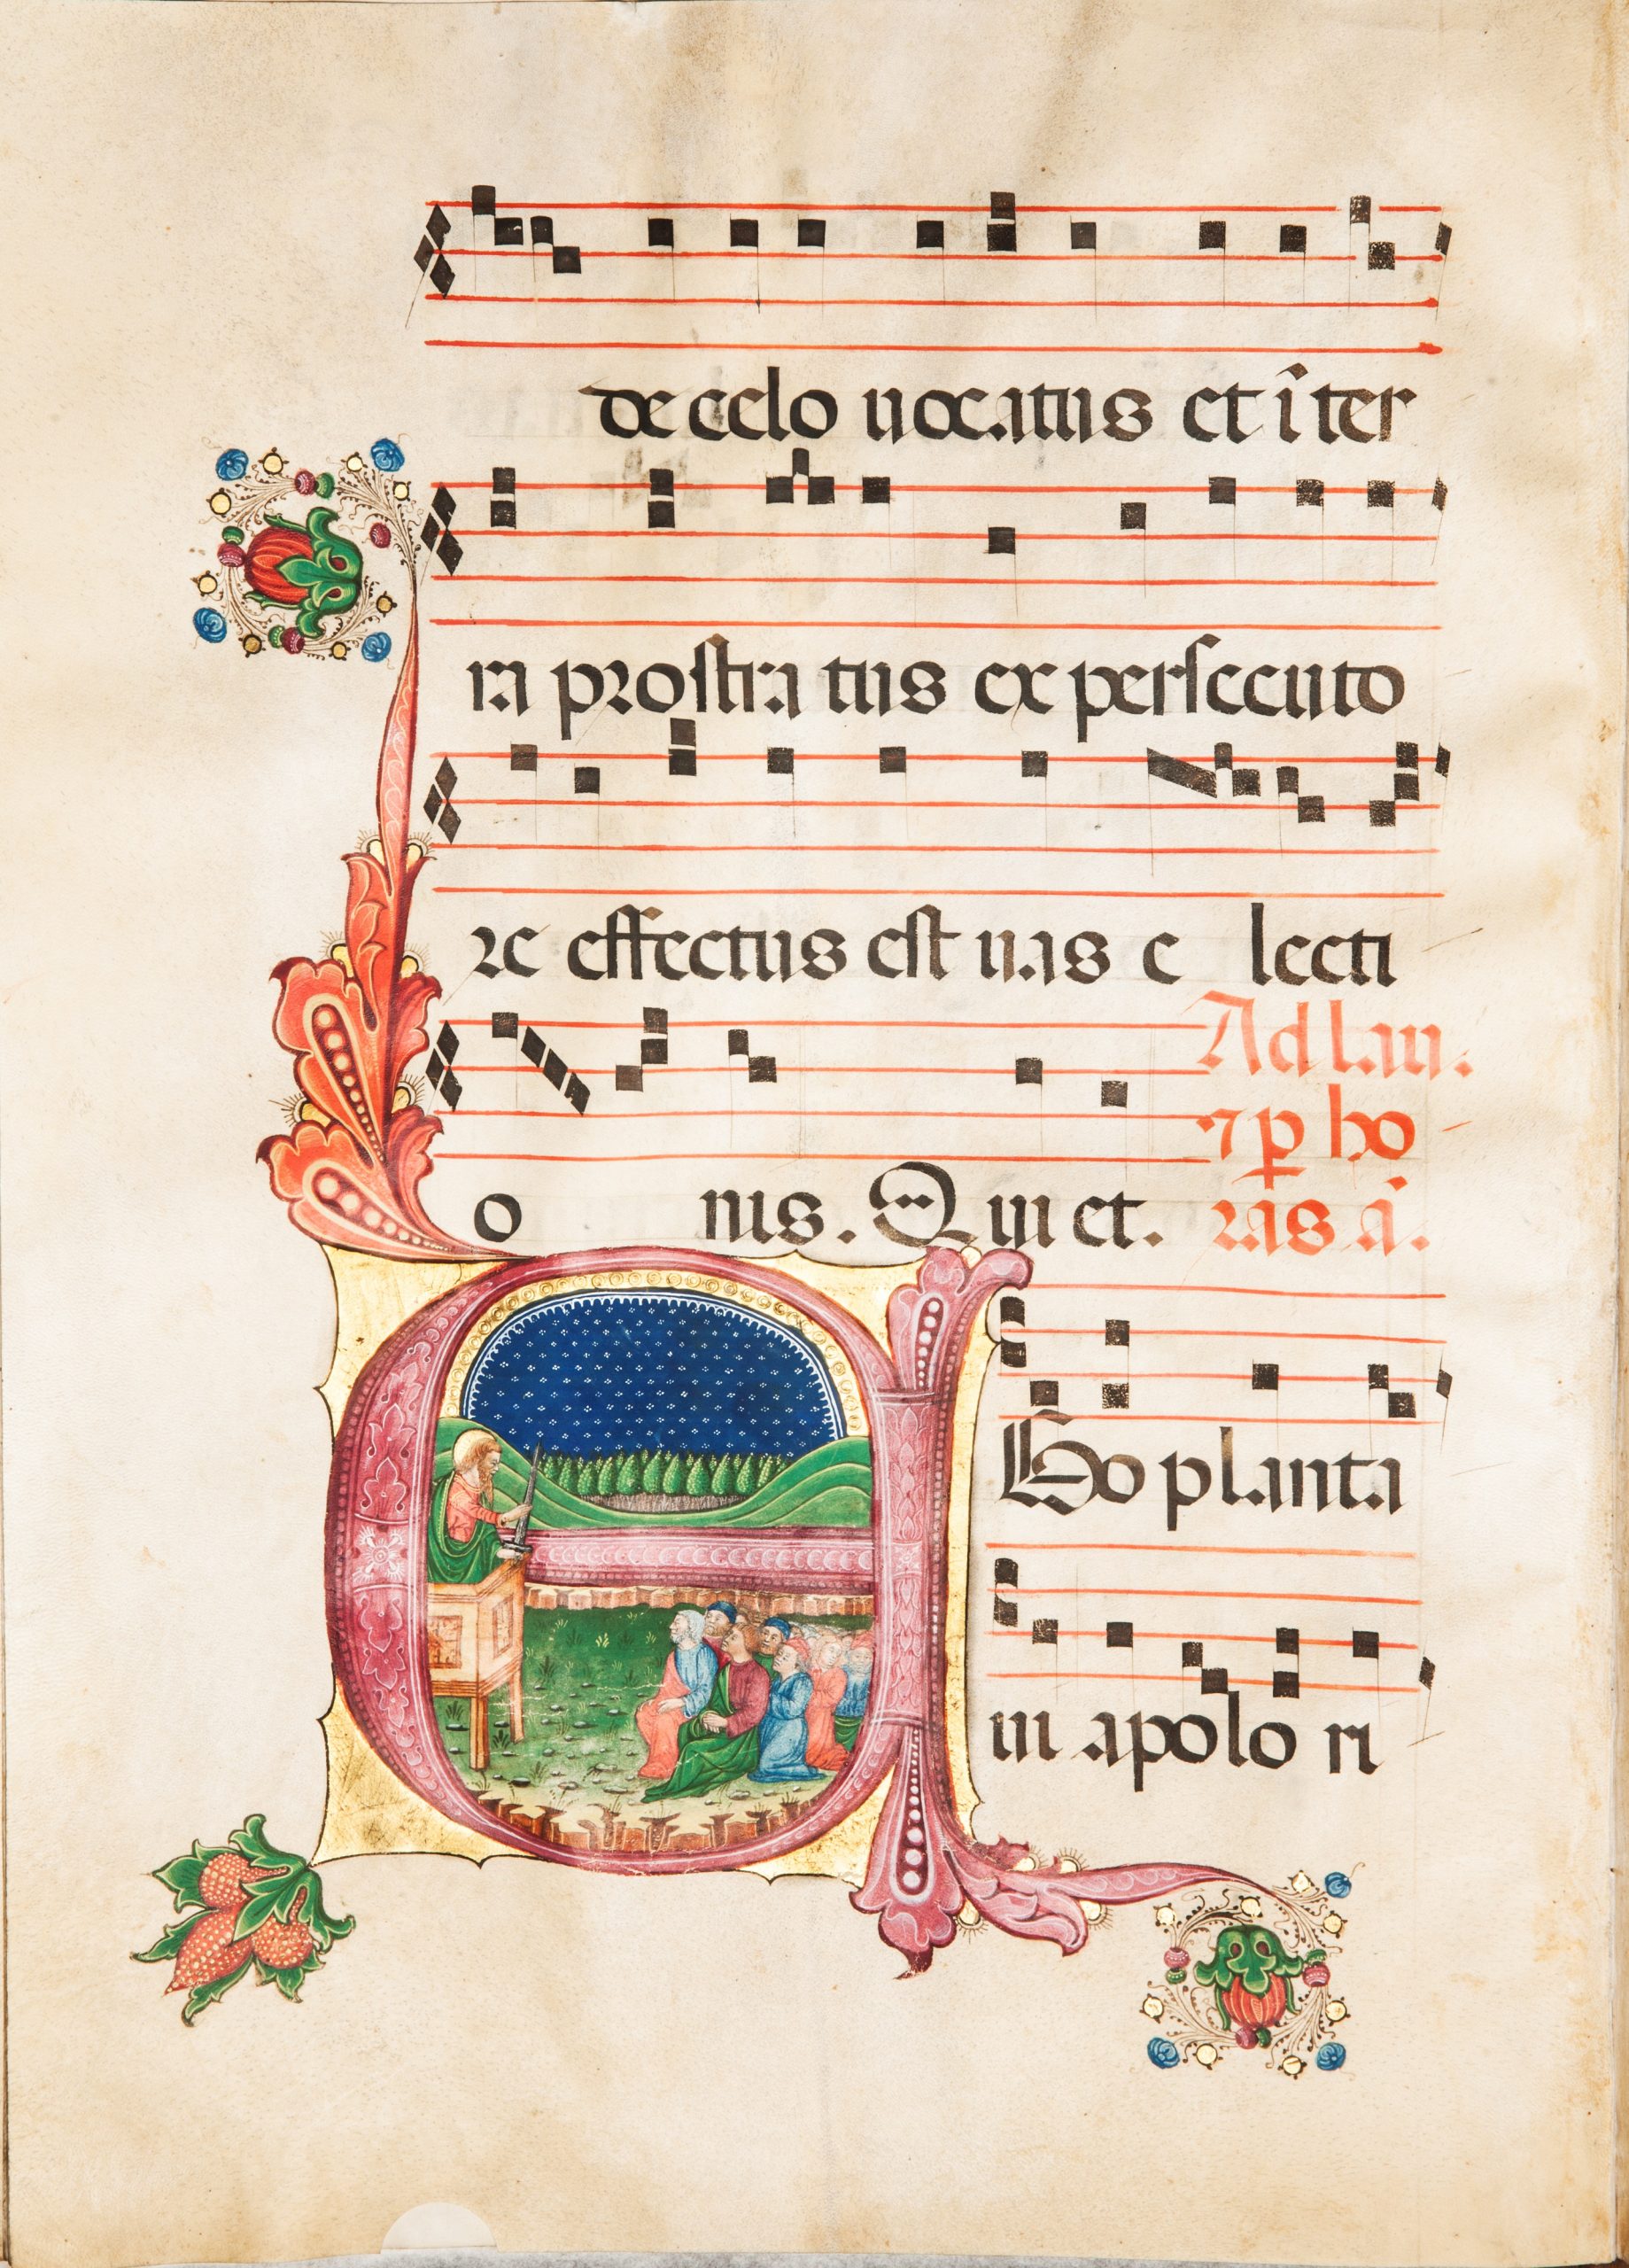 de celo uocatus et ĩ ter
ra prostra tus ex persecuto
re effectus est uas e lecti
o nis. Qui et. Ad lau.
⁊ ꝑ ho
ras añ.
EGo planta
ui apolo ri